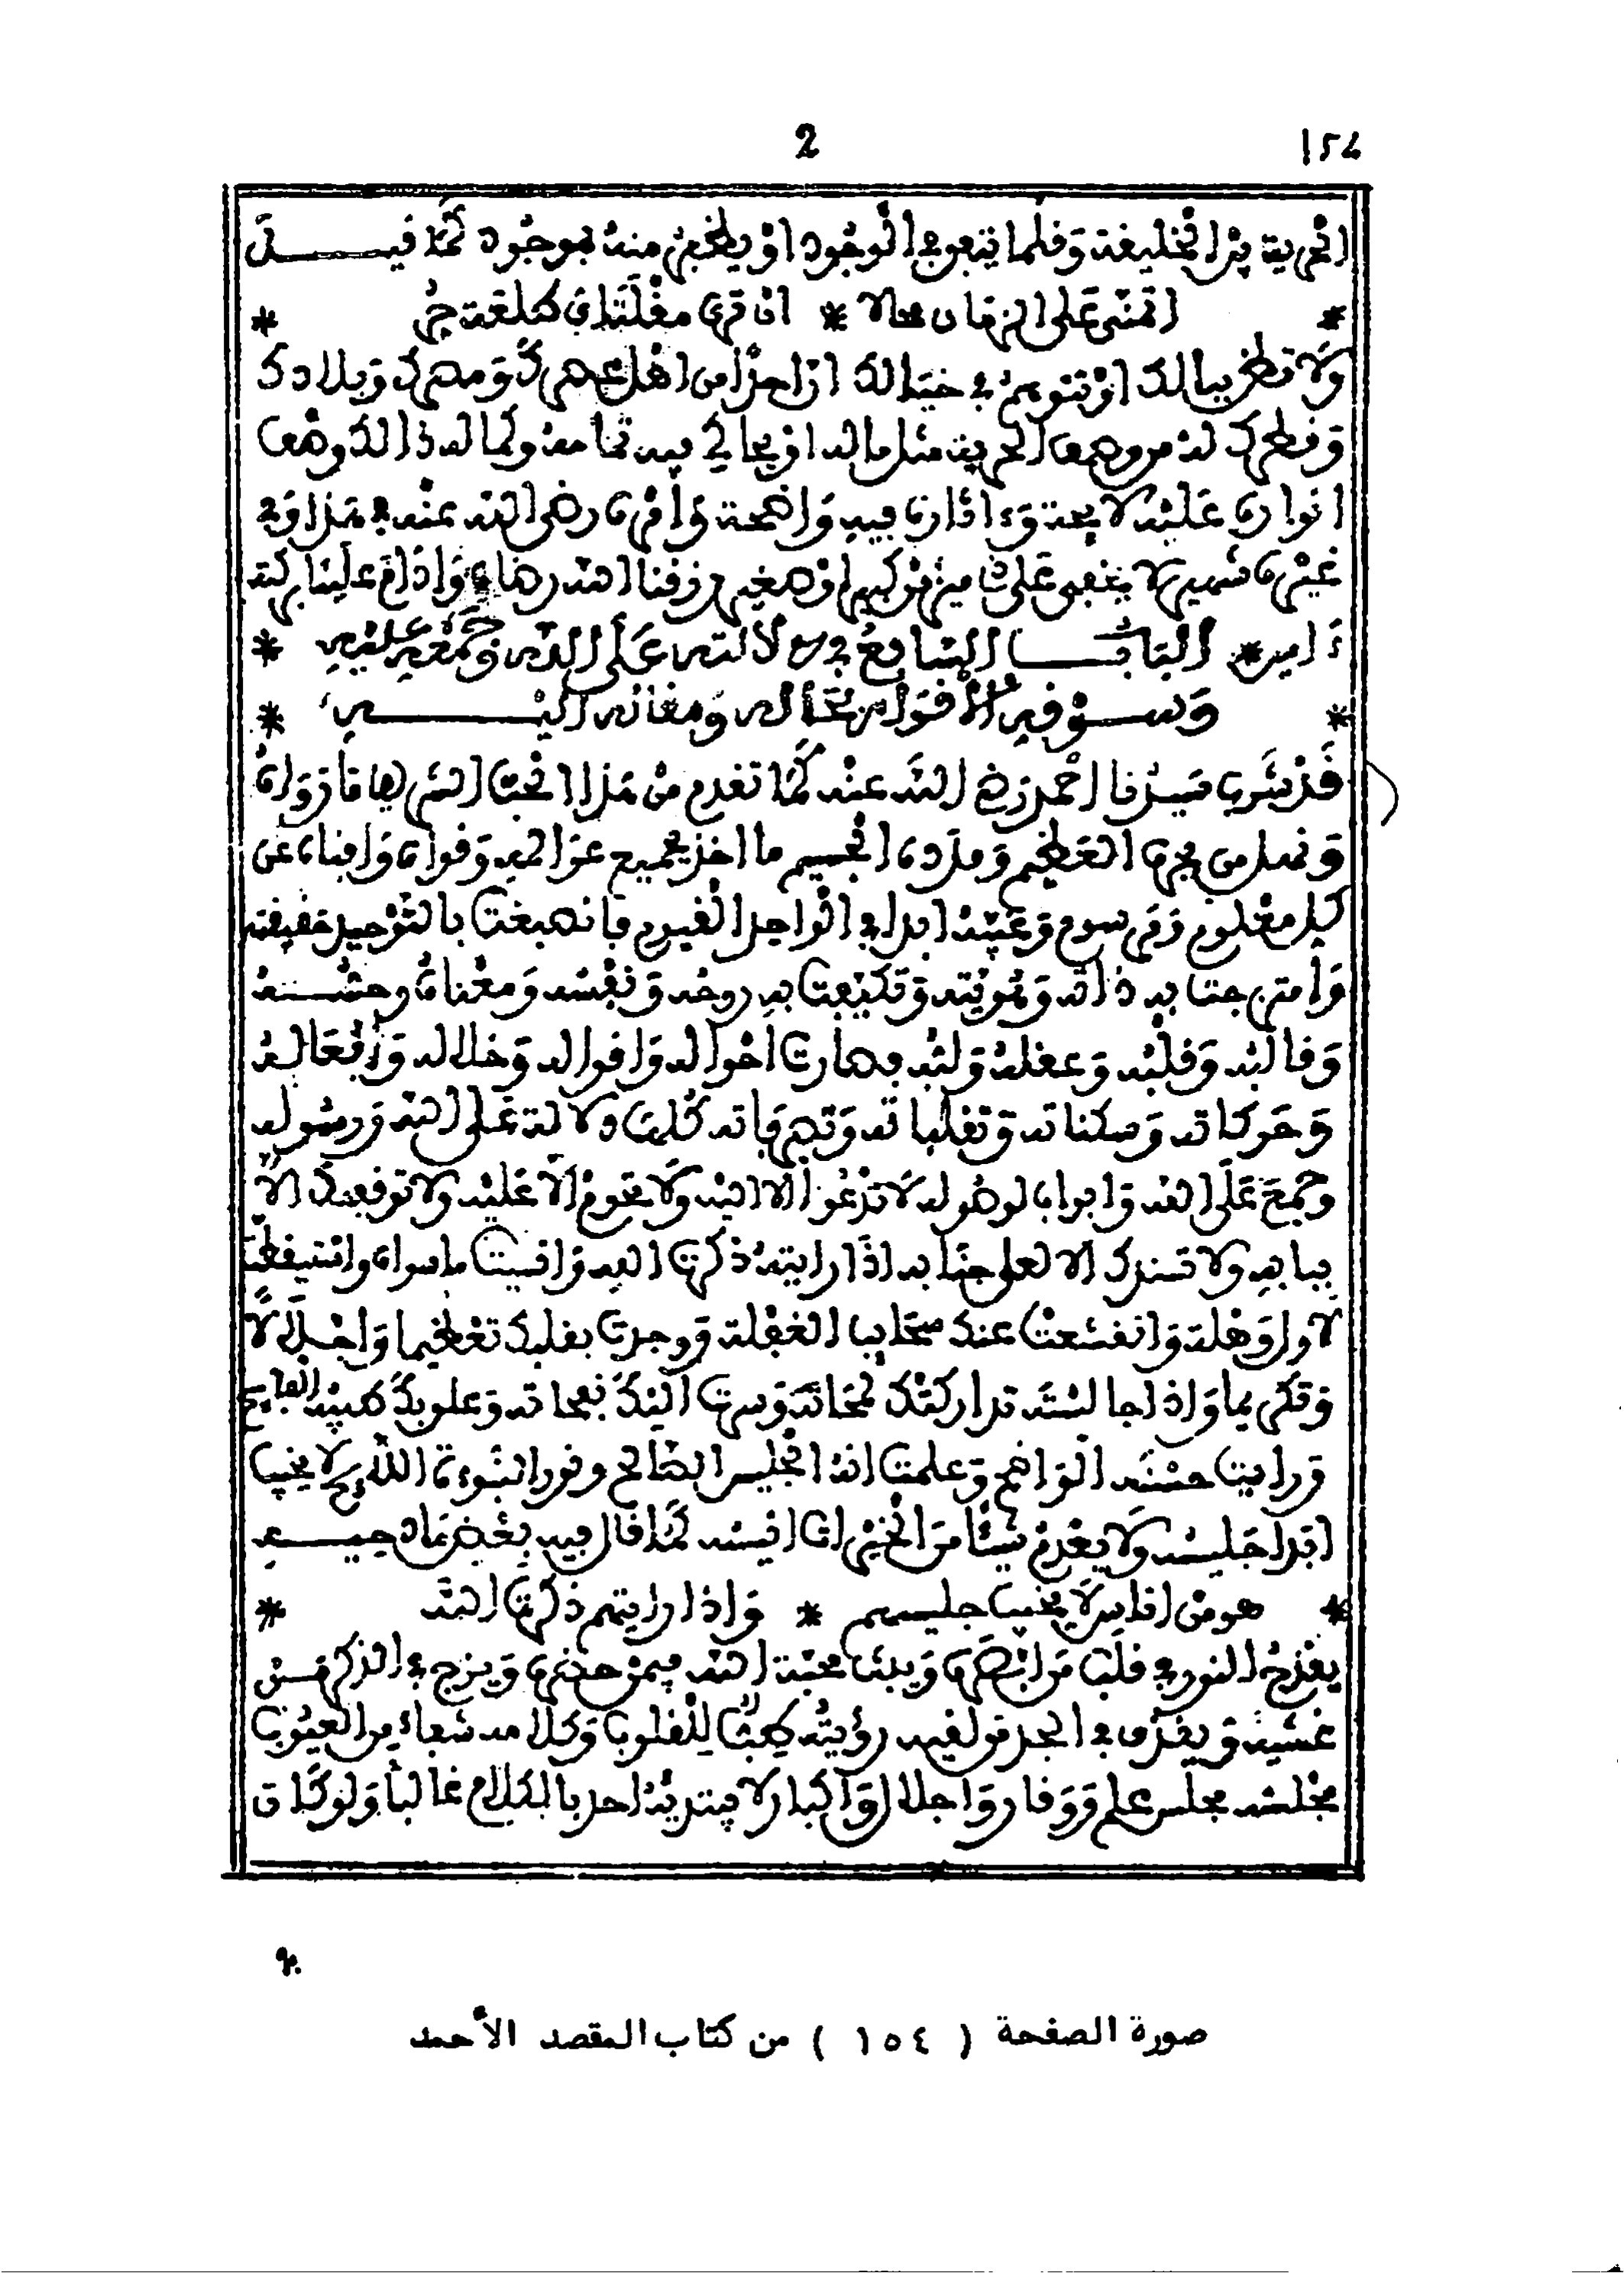 2
١٥٤
الحرية بين الخليفة وقلما يتفق في الوجود او يظفر منه بموجود كما قيل
* اتمنى على الزمان محالا * ان ترى مقلتاي طلعة حر *
ولا تخطر ببالك او تتوهم في خيالك ان احدا من اهل عصرك ومصرك وبلادك
وقطرك له من وصف الحرية مثل ماله او يحاكي فيه تمامه وكماله ذالك وصف
انواره عليه لائحة وءاثاره فيه واضحة وامره رضي الله عنه في هذا وفي
غيره شهير لا يخفى على مميز من كبير او صغير رزقنا الله رضاه وادام علينا بركته
ءامين * الباب السابع في دلالته على الله وجمعه عليه *
* وسوقه الاقوام بحاله ومقاله اليه *
قد شرب سيدنا احمد رضي الله عنه كما تقدم من هذا الحب الشهي فازواه
ونهل من بحره العظيم ومدده الجسيم ما اخذ بجميع عوالمه وقواه وافناه عن
كل معلوم ومرسوم وغيبه ابدا في الواحد القيوم فانصبغت بالتوحيد حقيقته
وامتزجت به ذاته وهويته وتكيفت به روحه ونفسه ومعناه وحسه
وقالبه وقلبه وعقله ولبه فصارت احواله واقواله وخلاله وافعاله
وحركاته وسكناته وتقلباته وتصرفاته كلها دلالة على الله ورسوله
وجمع على الله وابواب لوصوله لا تدعو الا اليه ولا تحوم الا عليه ولا توقفك الا
ببابه ولا تسندك الا لعلي جنابه اذا رايته ذكرت الله وانسيت ما سواه واستيقظت
لاول وهلة وانقشعت عنك سحايب الغفلة ووجدت بقلبك تعظيما واجلالا
وتكريما واذا جالسته تداركتك لمحاته وسرت اليك نفحاته وعلق بك طيبه الفايح
ورايت حسنه الواضح وعلمت انه الجليس الصالح ونور النبوءة اللايح لا يخيب
ابدا جليسه ولا يعدم شيئا من الخير انيسه كما قال فيه بعض مادحيه
* هو من اناس لا يخيب جليسهم * واذا رايتهم ذكرت الله *
يقذح النور في قلب من ابصره ويبث محبة الله فيمن حضره ويزج في الذكر من
غشيه ويغرق في الجد من لقيه رؤيته طب للقلوب وكلامه شفاء من العيوب
مجلسه مجلس علم ووقار واجلال واكبار لا يبتديه احد بالكلام غالبا ولو كان
صورة الصفحة ( ١٥٤ ) من كتاب المقصد الأحمد